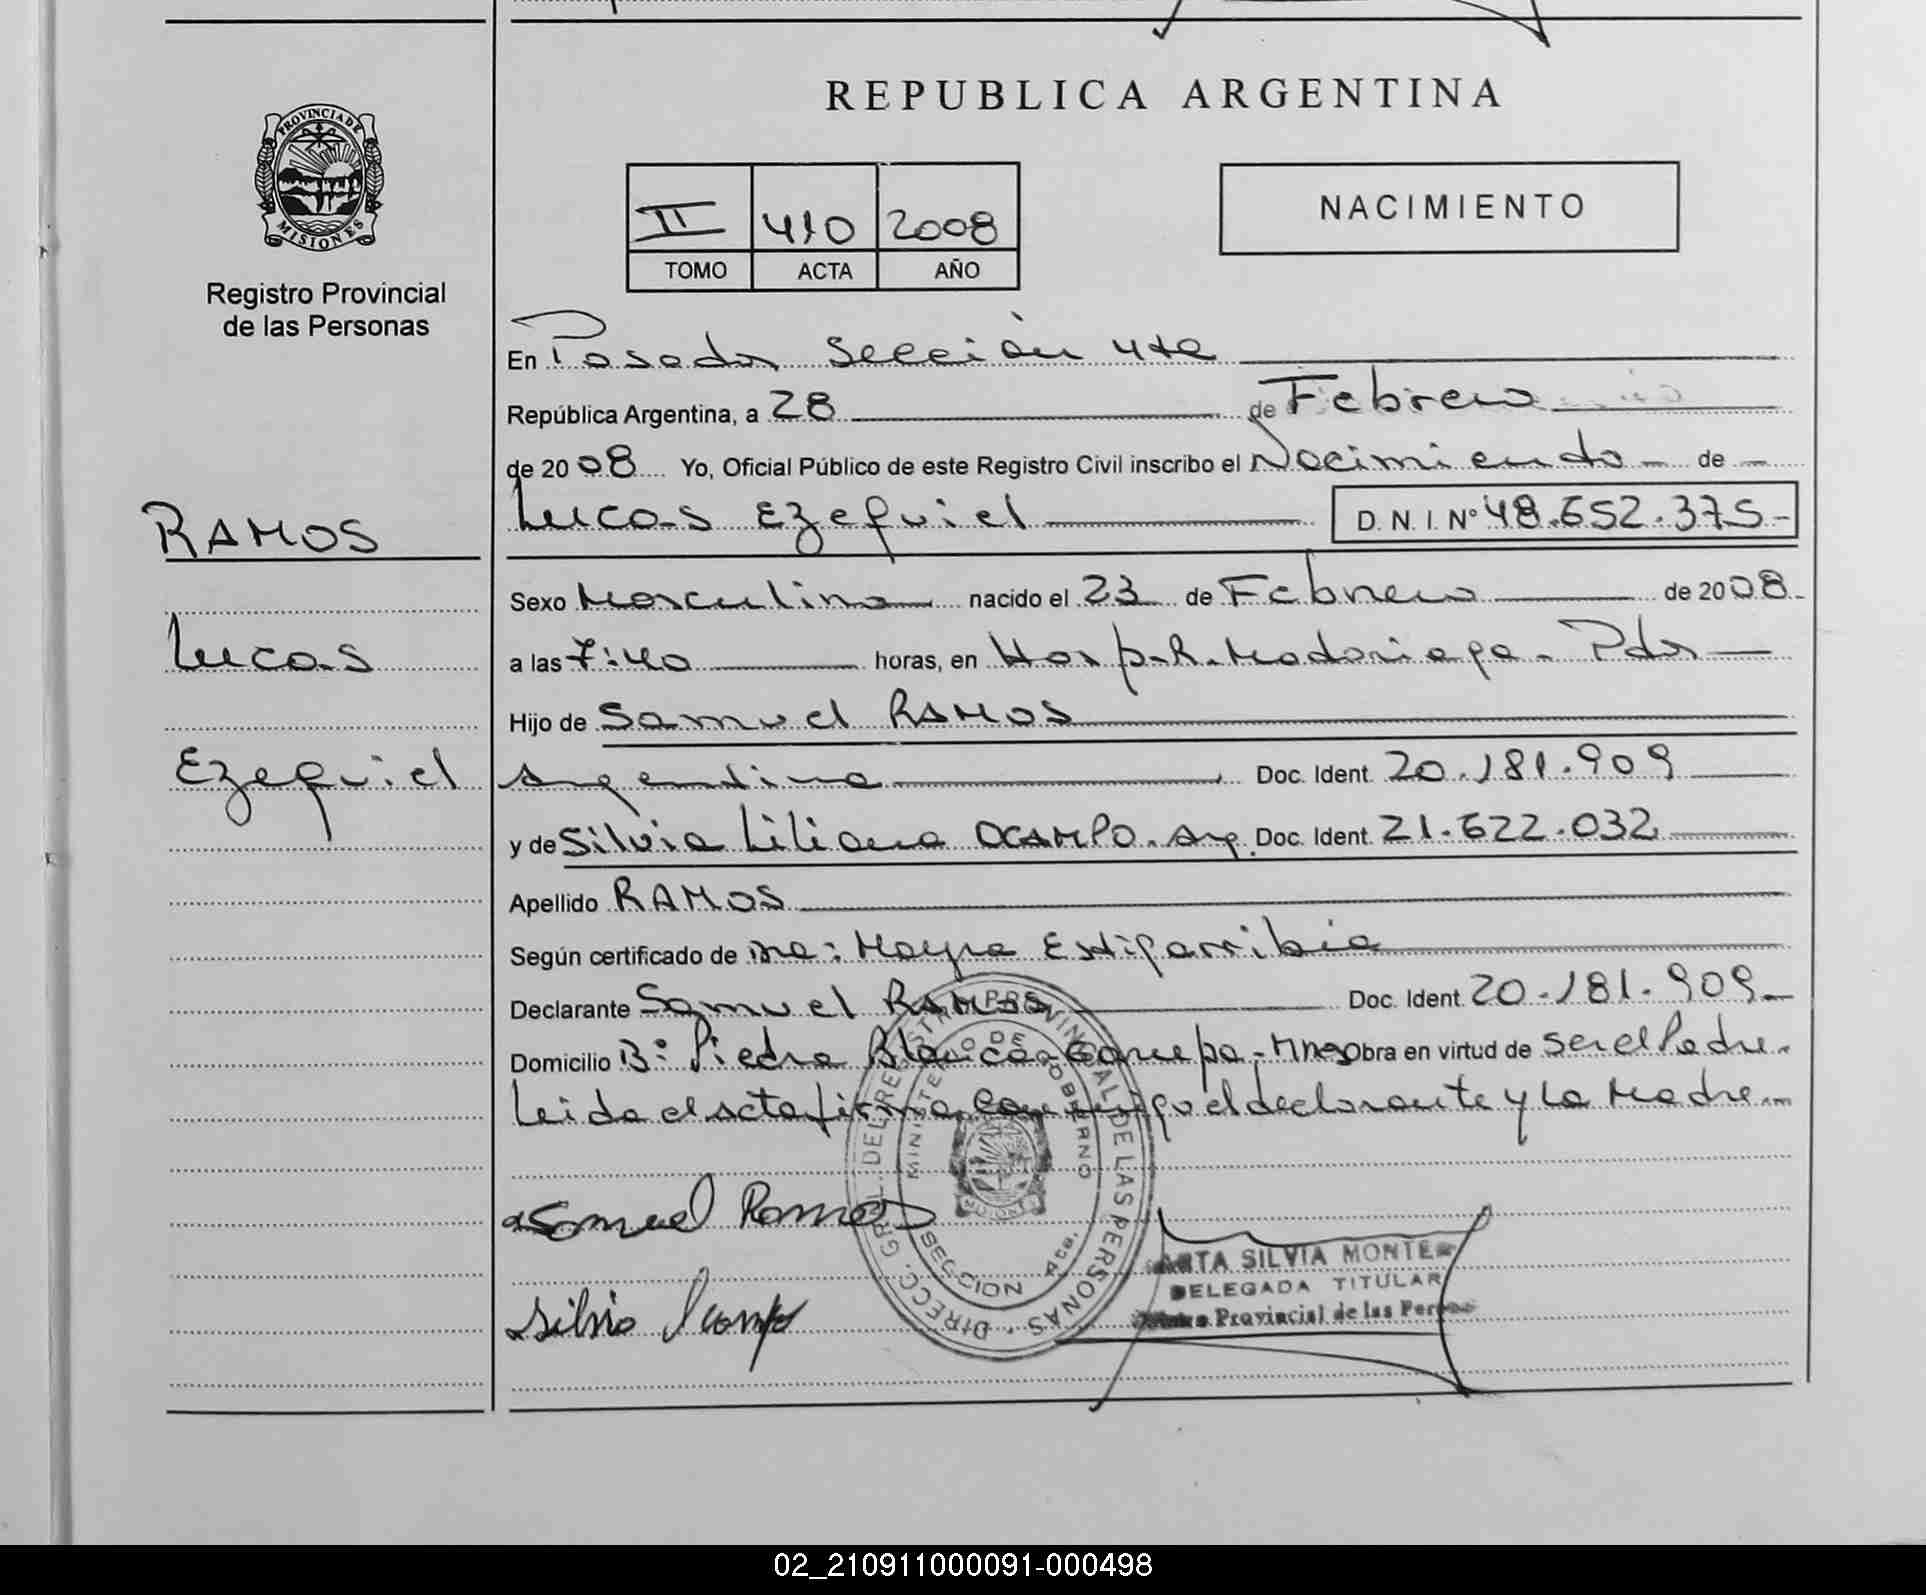 REPUBLICA ARGENTINA
PROVINCIA DE
MISIONES
Registro Provincial
de las Personas
II 410 2008
TOMO ACTA AÑO
NACIMIENTO
En Posadas Sección 4ta
República Argentina, a 28 de Febrero
de 2008 Yo, Oficial Público de este Registro Civil inscribo el Nacimiento de
RAMOS
Lucas Ezequiel D. N. I. N° 48.652.375
Sexo Masculino nacido el 23 de Febrero de 2008
Lucas
a las 7:40 horas, en Hosp. R. Madariaga - Pdas
Hijo de Samuel RAMOS
Ezequiel
Argentina Doc. Ident. 20.181.909
y de Silvia Liliana OCAMPO. Arg. Doc. Ident. 21.622.032
Apellido RAMOS
Según certificado de Estigarribia
Declarante Samuel RAMOS Doc. Ident. 20.181.909
Domicilio B° Piedra Blanca - Garupa - Mnes obra en virtud de ser el Padre
Leida el acta firma conmigo el declarante y la Madre
Samuel Ramos
Silvia Ocampo
DIRECC. GRAL. DEL REGISTRO PROVINCIAL DE LAS PERSONAS
MINISTERIO DE GOBIERNO
SECCION 4ta.
SILVIA MONTE
DELEGADA TITULAR
Provincial de las
02_210911000091-000498